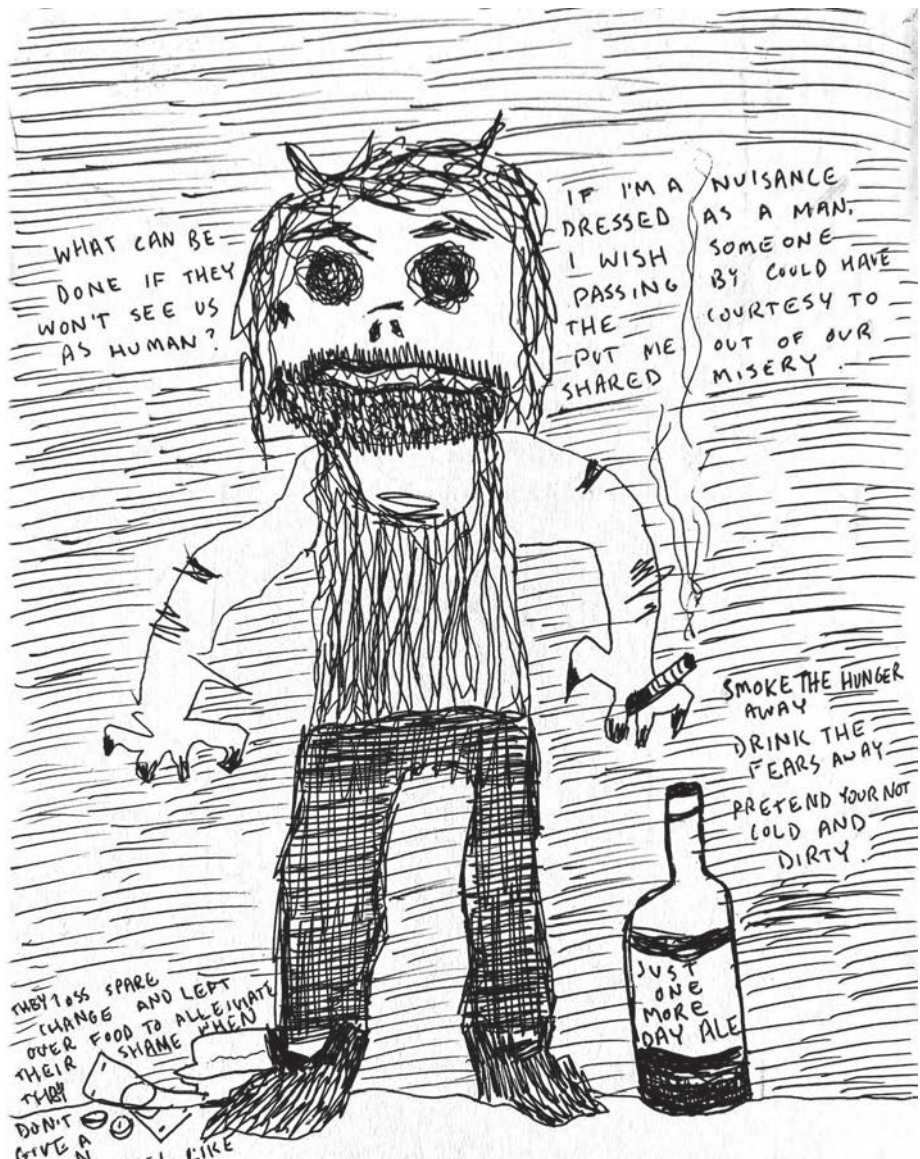 WHAT CAN BE
DONE IF THEY
WON'T SEE US
AS HUMAN?
IF I'M A NUISANCE
DRESSED AS A MAN,
I WISH SOMEONE
PASSING BY COULD HAVE
THE COURTESY TO
PUT ME OUT OF OUR
SHARED MISERY.
SMOKE THE HUNGER
AWAY
DRINK THE
FEARS AWAY
PRETEND YOUR NOT
COLD AND
DIRTY.
JUST
ONE
MORE
DAY ALE
THEY TOSS SPARE
CHANGE AND LEFT
OVER FOOD TO ALLEIVIATE
THEIR SHAME WHEN
THEY
DON'T
GIVE A
LIKE